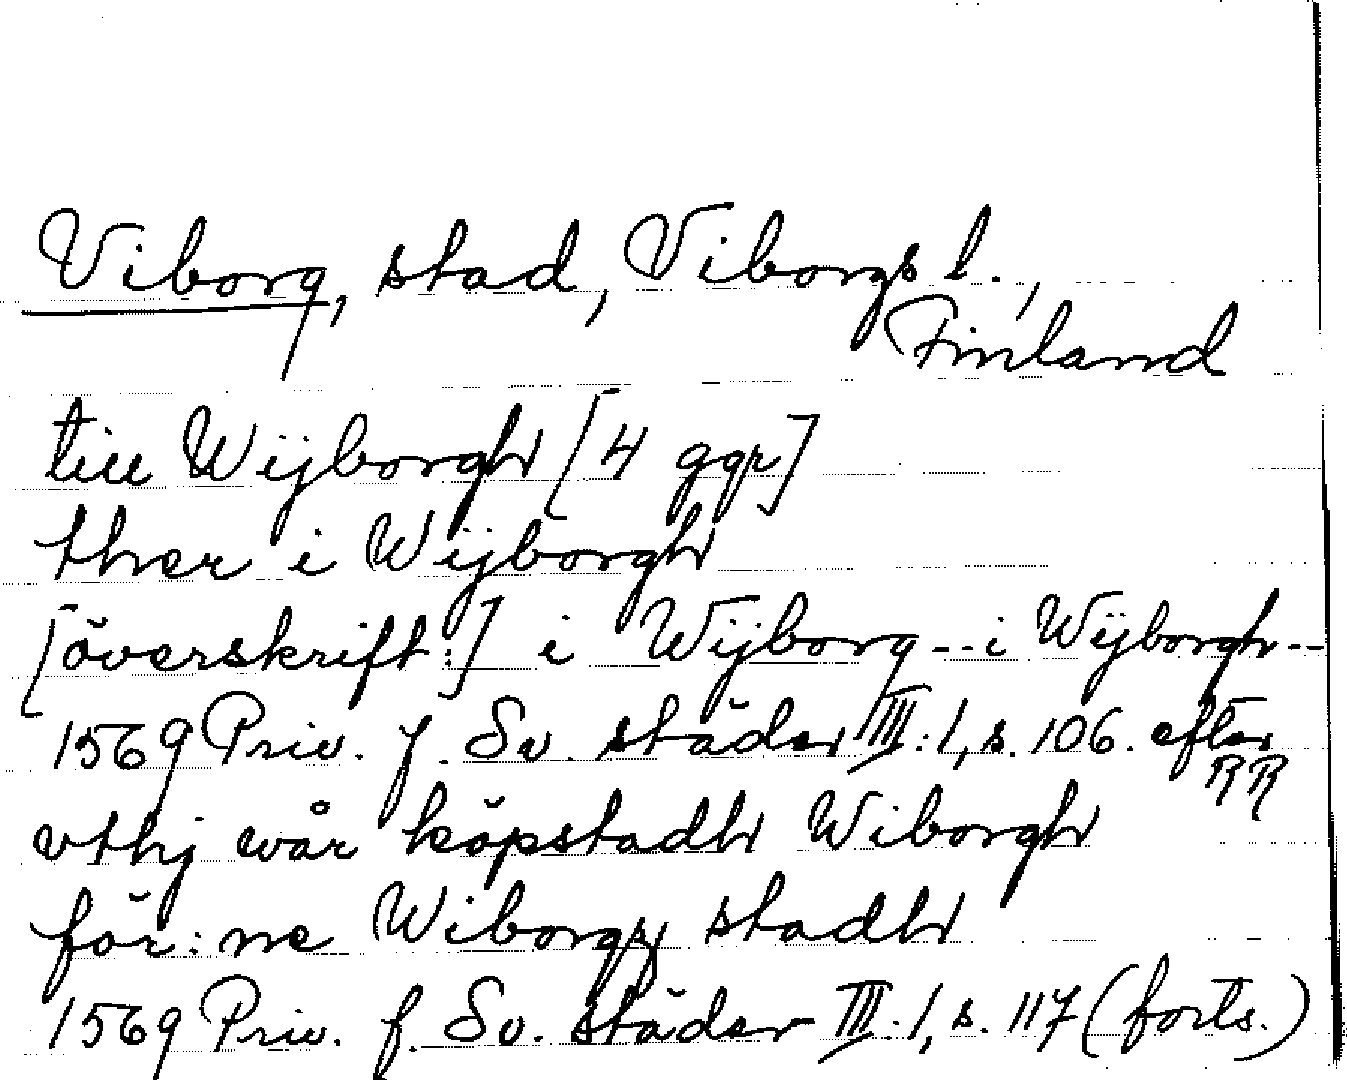 Viborg, stad, Viborgs l.,
Finland
till Wijborgh [4 ggr]
ther i Wijborgh
[överskrift:] i Wijborg -- i Wijborgh --
1569 Priv. f. Sv. städer III:1, s. 106. efter
RR
vthj wår köpstadh Wiborgh
för:ne Wiborgz stadh
1569 Priv. f. Sv. städer III:1, s. 117 (forts.)